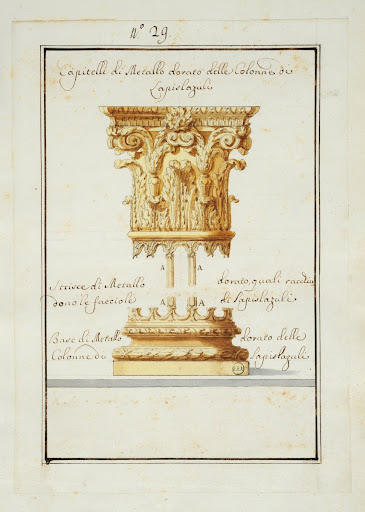 N.º 29
Capitelli di Metallo dorato delle Colonne di
Lapislazuli
A A
Striscie di Metallo dorato, quali racchiu
dono le facciole di Lapislazuli
A A
Base di Metallo dorato delle
Colonne di Lapislazuli